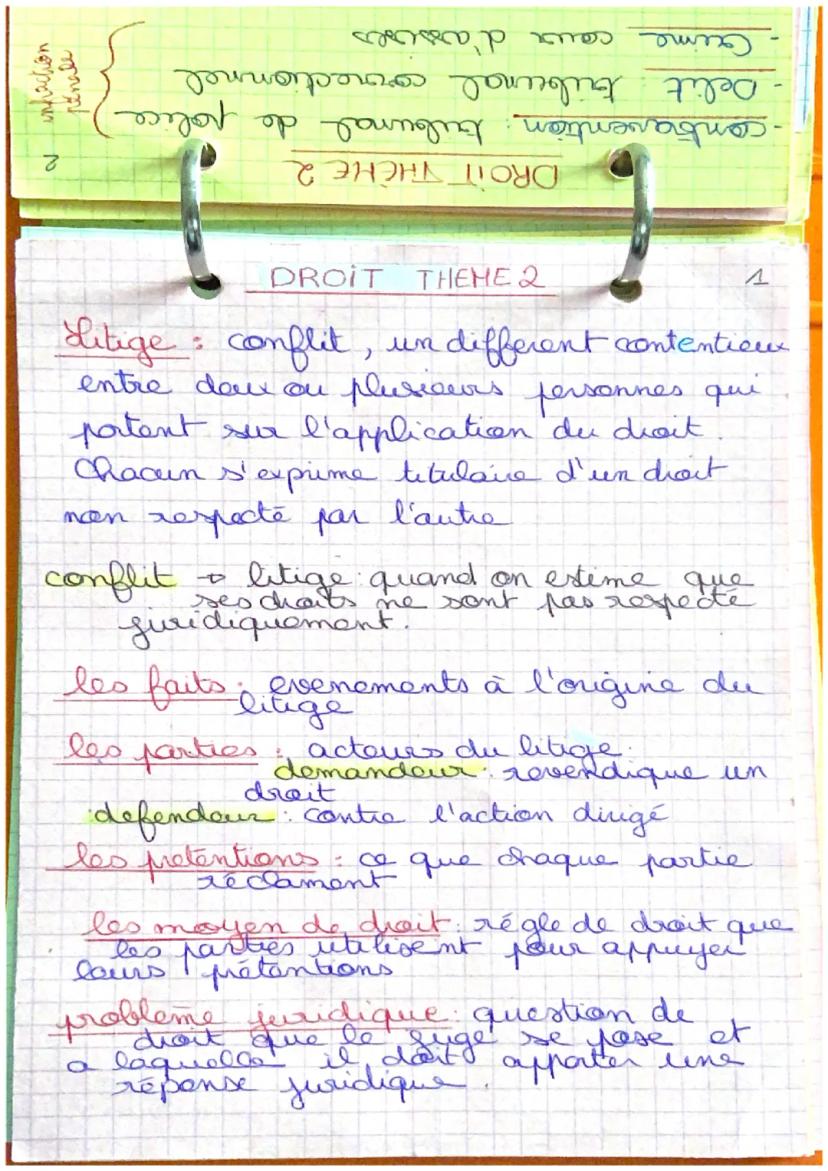 DROIT THÈME 2
2
- contravention : tribunal de police
- Delit : tribunal correctionnel
- Crime cour d'assises
infraction pénale
DROIT THEME 2
1
Litige : conflit, un different contentieux
entre deux ou plusieurs personnes qui
portent sur l'application du droit.
Chacun s'exprime titulaire d'un droit
non respecté par l'autre
conflit → litige : quand on estime que
ses droits ne sont pas respecté
juridiquement.
les faits : evenements à l'origine du
litige
les parties : acteurs du litige.
demandeur : revendique un
droit
defendeur : contre l'action dirigé
les pretentions : ce que chaque partie
réclament
les moyen de droit : régle de droit que
les parties utilisent pour appuyer
leurs prétantions
probleme juridique : question de
droit que le juge se pose et
a laquelle il doit apporter une
réponse juridique.